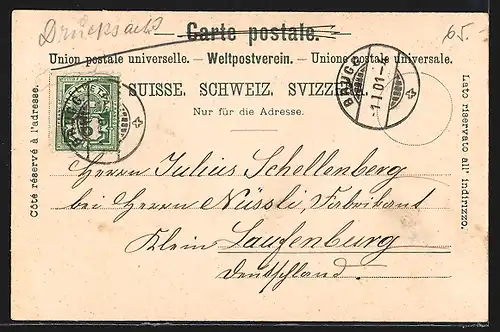 Drucksache
65.-
Carte postale.
Union postale universelle. – Weltpostverein. – Unione postale universale.
SUISSE. SCHWEIZ. SVIZZE
Nur für die Adresse.
BRUGG
-1.I.01.-
Côté réservé à l'adresse.
Lato riservato all' indirizzo.
Herrn Julius Schellenberg
bei Herrn Nüssli, Fabrikant
Klein Laufenburg
Deutschland.